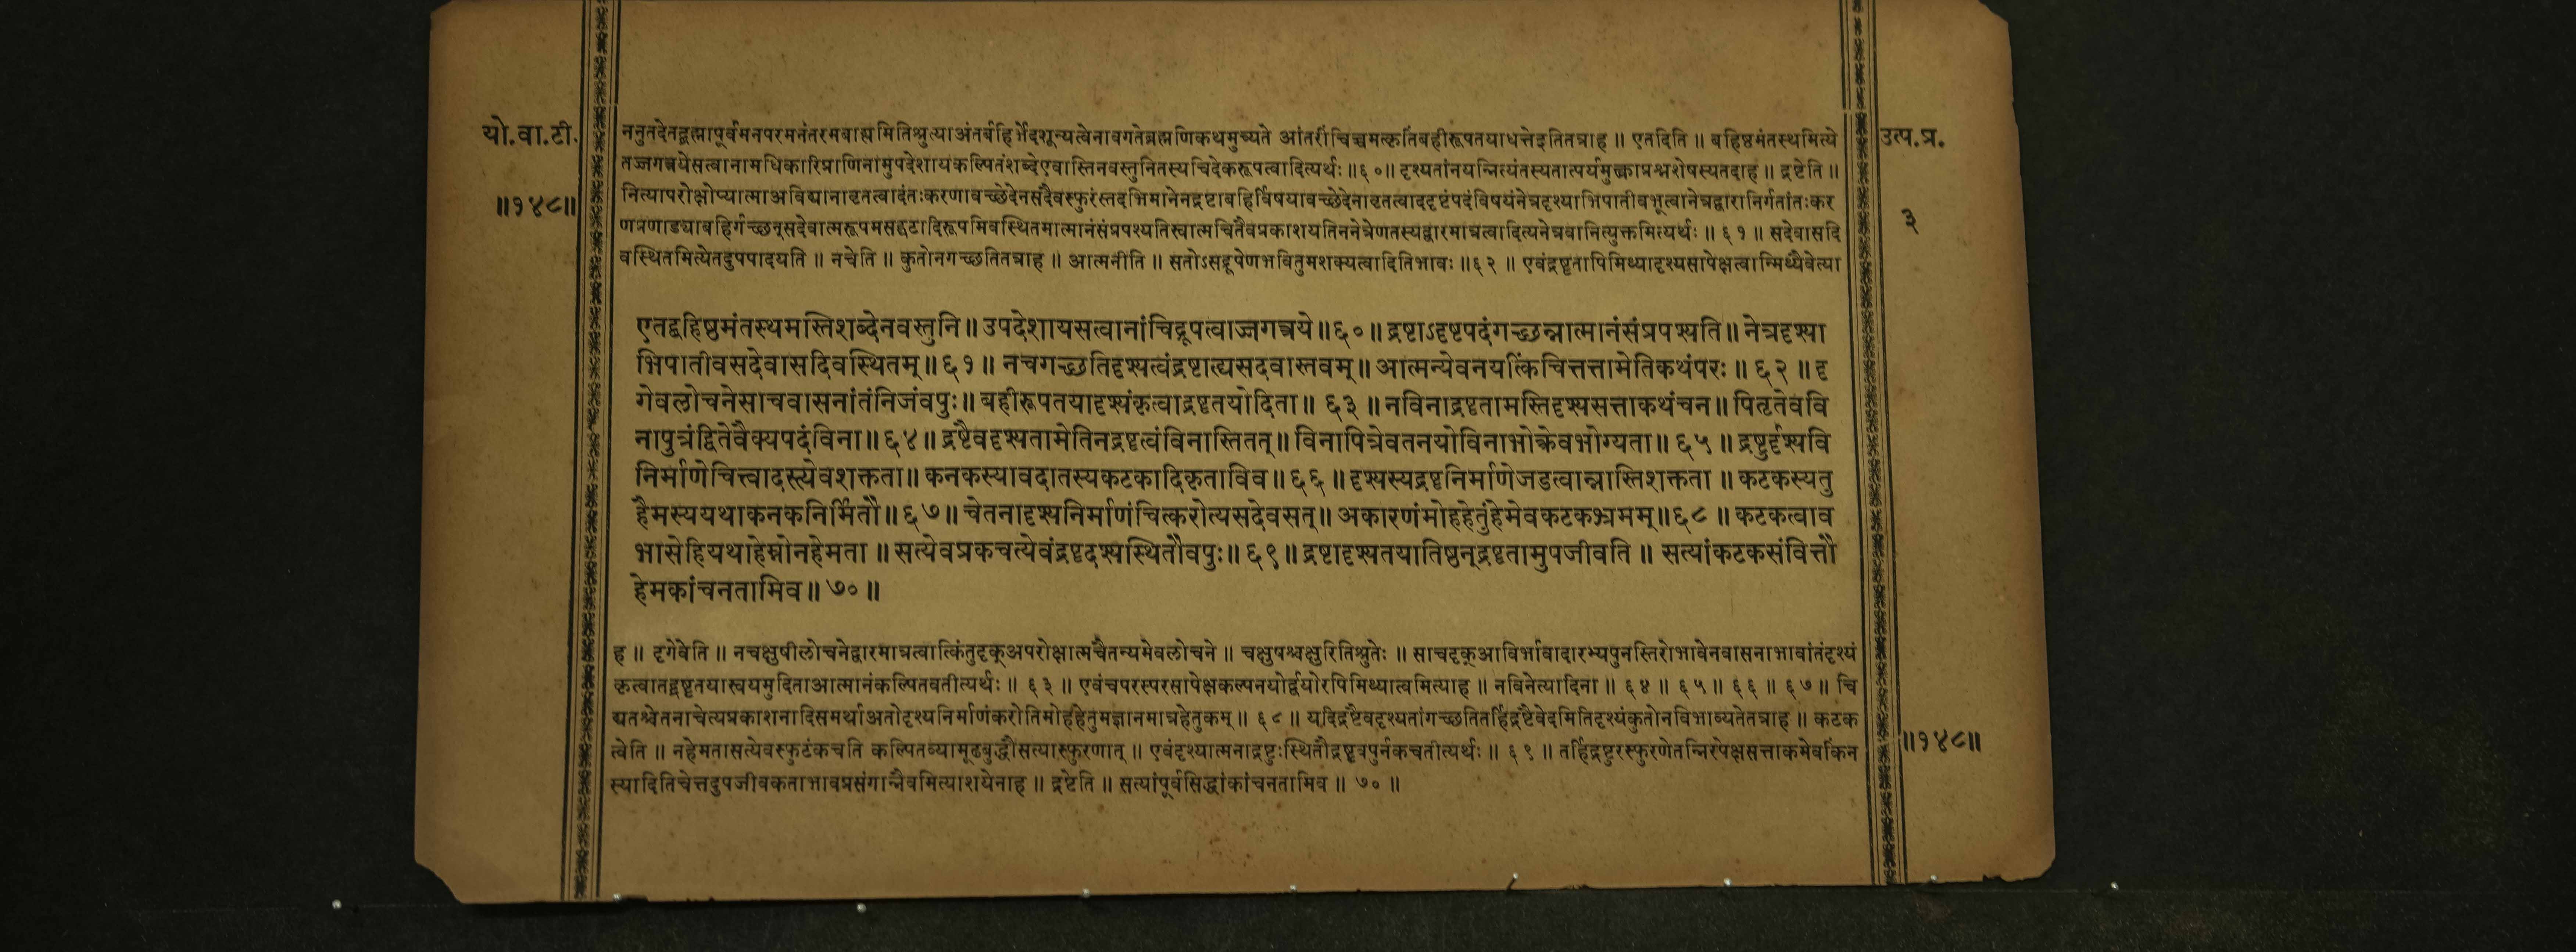 यो.वा.टी.
॥१४८॥
उत्प.प्र.
३
ननुतदेतद्ब्रह्मापूर्वमनपरमनंतरमबाह्यमितिश्रुत्याअंतर्बहिर्भेदशून्यत्वेनावगतेब्रह्मणिकथमुच्यते आंतरीचिच्चमत्कृतिंबहीरूपतयाधत्तेइतितत्राह ॥ एतदिति ॥ बहिष्ठमंतस्थमित्ये
तज्जगत्रयेसत्वानामधिकारिप्राणिनामुपदेशायकल्पितंशब्देएवास्तिनवस्तुनितस्यचिदेकरूपत्वादित्यर्थः ॥६०॥ दृश्यतांनयन्नित्यंतस्यतात्पर्यमुक्त्वाप्रश्नशेषस्यतदाह ॥ द्रष्टेति ॥
नित्यापरोक्षोप्यात्माअविद्यानावृतत्वादंतःकरणावच्छेदेनसदैवस्फुरंस्तदभिमानेनद्रष्टाबहिर्विषयावच्छेदेनावृतत्वाददृष्टंपदंविषयंनेत्रदृश्याभिपातीवभूत्वानेत्रद्वारानिर्गतांतःकर
णप्रणाड्याबहिर्गच्छन्सदेवात्मरूपमसद्घटादिरूपमिवस्थितमात्मानंसंप्रपश्यतिस्वात्मचितैवप्रकाशयतिननेत्रेणतस्यद्वारमात्रत्वादित्यनेत्रवानित्युक्तमित्यर्थः ॥ ६१ ॥ सदेवासदि
वस्थितमित्येतदुपपादयति ॥ नचेति ॥ कुतोनगच्छतितत्राह ॥ आत्मनीति ॥ सतोऽसद्रूपेणभवितुमशक्यत्वादितिभावः ॥६२ ॥ एवंद्रष्टृतापिमिथ्यादृश्यसापेक्षत्वान्मिथ्यैवेत्या
एतद्बहिष्ठमंतस्थमस्तिशब्देनवस्तुनि ॥ उपदेशायसत्वानांचिद्रूपत्वाज्जगत्रये ॥६०॥ द्रष्टाऽदृष्टपदंगच्छन्नात्मानंसंप्रपश्यति ॥ नेत्रदृश्या
भिपातीवसदेवासदिवस्थितम् ॥ ६१ ॥ नचगच्छतिदृश्यत्वंद्रष्टाह्यसदवास्तवम् ॥ आत्मन्येवनयत्किंचित्तत्तामेतिकथंपरः ॥ ६२ ॥ दृ
गेवलोचनेसाचवासनांतंनिजंवपुः ॥ बहीरूपतयादृश्यंकृत्वाद्रष्टृतयोदिता ॥ ६३ ॥ नविनाद्रष्टृतामस्तिदृश्यसत्ताकथंचन ॥ पितृतेववि
नापुत्रंद्वितेवैक्यपदंविना ॥ ६४ ॥ द्रष्टैवदृश्यतामेतिनद्रष्टृत्वंविनास्तितत् ॥ विनापित्रेवतनयोविनाभोक्त्रेवभोग्यता ॥ ६५ ॥ द्रष्टुर्दृश्यवि
निर्माणेचित्त्वादस्त्येवशक्तता ॥ कनकस्यावदातस्यकटकादिकृताविव ॥ ६६ ॥ दृश्यस्यद्रष्टृनिर्माणेजडत्वान्नास्तिशक्तता ॥ कटकस्यतु
हैमस्ययथाकनकनिर्मितौ ॥ ६७ ॥ चेतनादृश्यनिर्माणंचित्करोत्यसदेवसत् ॥ अकारणंमोहहेतुंहेमेवकटकभ्रमम् ॥ ६८ ॥ कटकत्वाव
भासेहियथाहेम्नोनहेमता ॥ सत्येवप्रकचत्येवंद्रष्टृदृश्यस्थितौवपुः ॥ ६९ ॥ द्रष्टादृश्यतयातिष्ठन्द्रष्टृतामुपजीवति ॥ सत्यांकटकसंवित्तौ
हेमकांचनतामिव ॥ ७० ॥
ह ॥ दृगेवेति ॥ नचक्षुषीलोचनेद्वारमात्रत्वात्किंतुदृक्अपरोक्षात्मचैतन्यमेवलोचने ॥ चक्षुषश्चक्षुरितिश्रुतेः ॥ साचदृक्आविर्भावादारभ्यपुनस्तिरोभावेनवासनाभावांतंदृश्यं
कृत्वातद्द्रष्टृतयास्वयमुदिताआत्मानंकल्पितवतीत्यर्थः ॥ ६३ ॥ एवंचपरस्परसापेक्षकल्पनयोर्द्वयोरपिमिथ्यात्वमित्याह ॥ नविनेत्यादिना ॥ ६४ ॥ ६५ ॥ ६६ ॥ ६७ ॥ चि
द्यतश्चेतनाचेत्यप्रकाशनादिसमर्थाअतोदृश्यनिर्माणंकरोतिमोहहेतुमज्ञानमात्रहेतुकम् ॥ ६८ ॥ यदिद्रष्टैवदृश्यतांगच्छतितर्हिद्रष्टैवेदमितिदृश्यंकुतोनविभाव्यतेतत्राह ॥ कटक
त्वेति ॥ नहेमतासत्येवस्फुटंकचति कल्पितव्यामूढबुद्धौसत्यास्फुरणात् ॥ एवंदृश्यात्मनाद्रष्टुःस्थितौद्रष्टृवपुर्नकचतीत्यर्थः ॥ ६९ ॥ तर्हिद्रष्टुरस्फुरणेतन्निरपेक्षसत्ताकमेवकिंन
स्यादितिचेत्तदुपजीवकताभावप्रसंगान्नैवमित्याशयेनाह ॥ द्रष्टेति ॥ सत्यांपूर्वसिद्धांकांचनतामिव ॥ ७० ॥
॥१४८॥